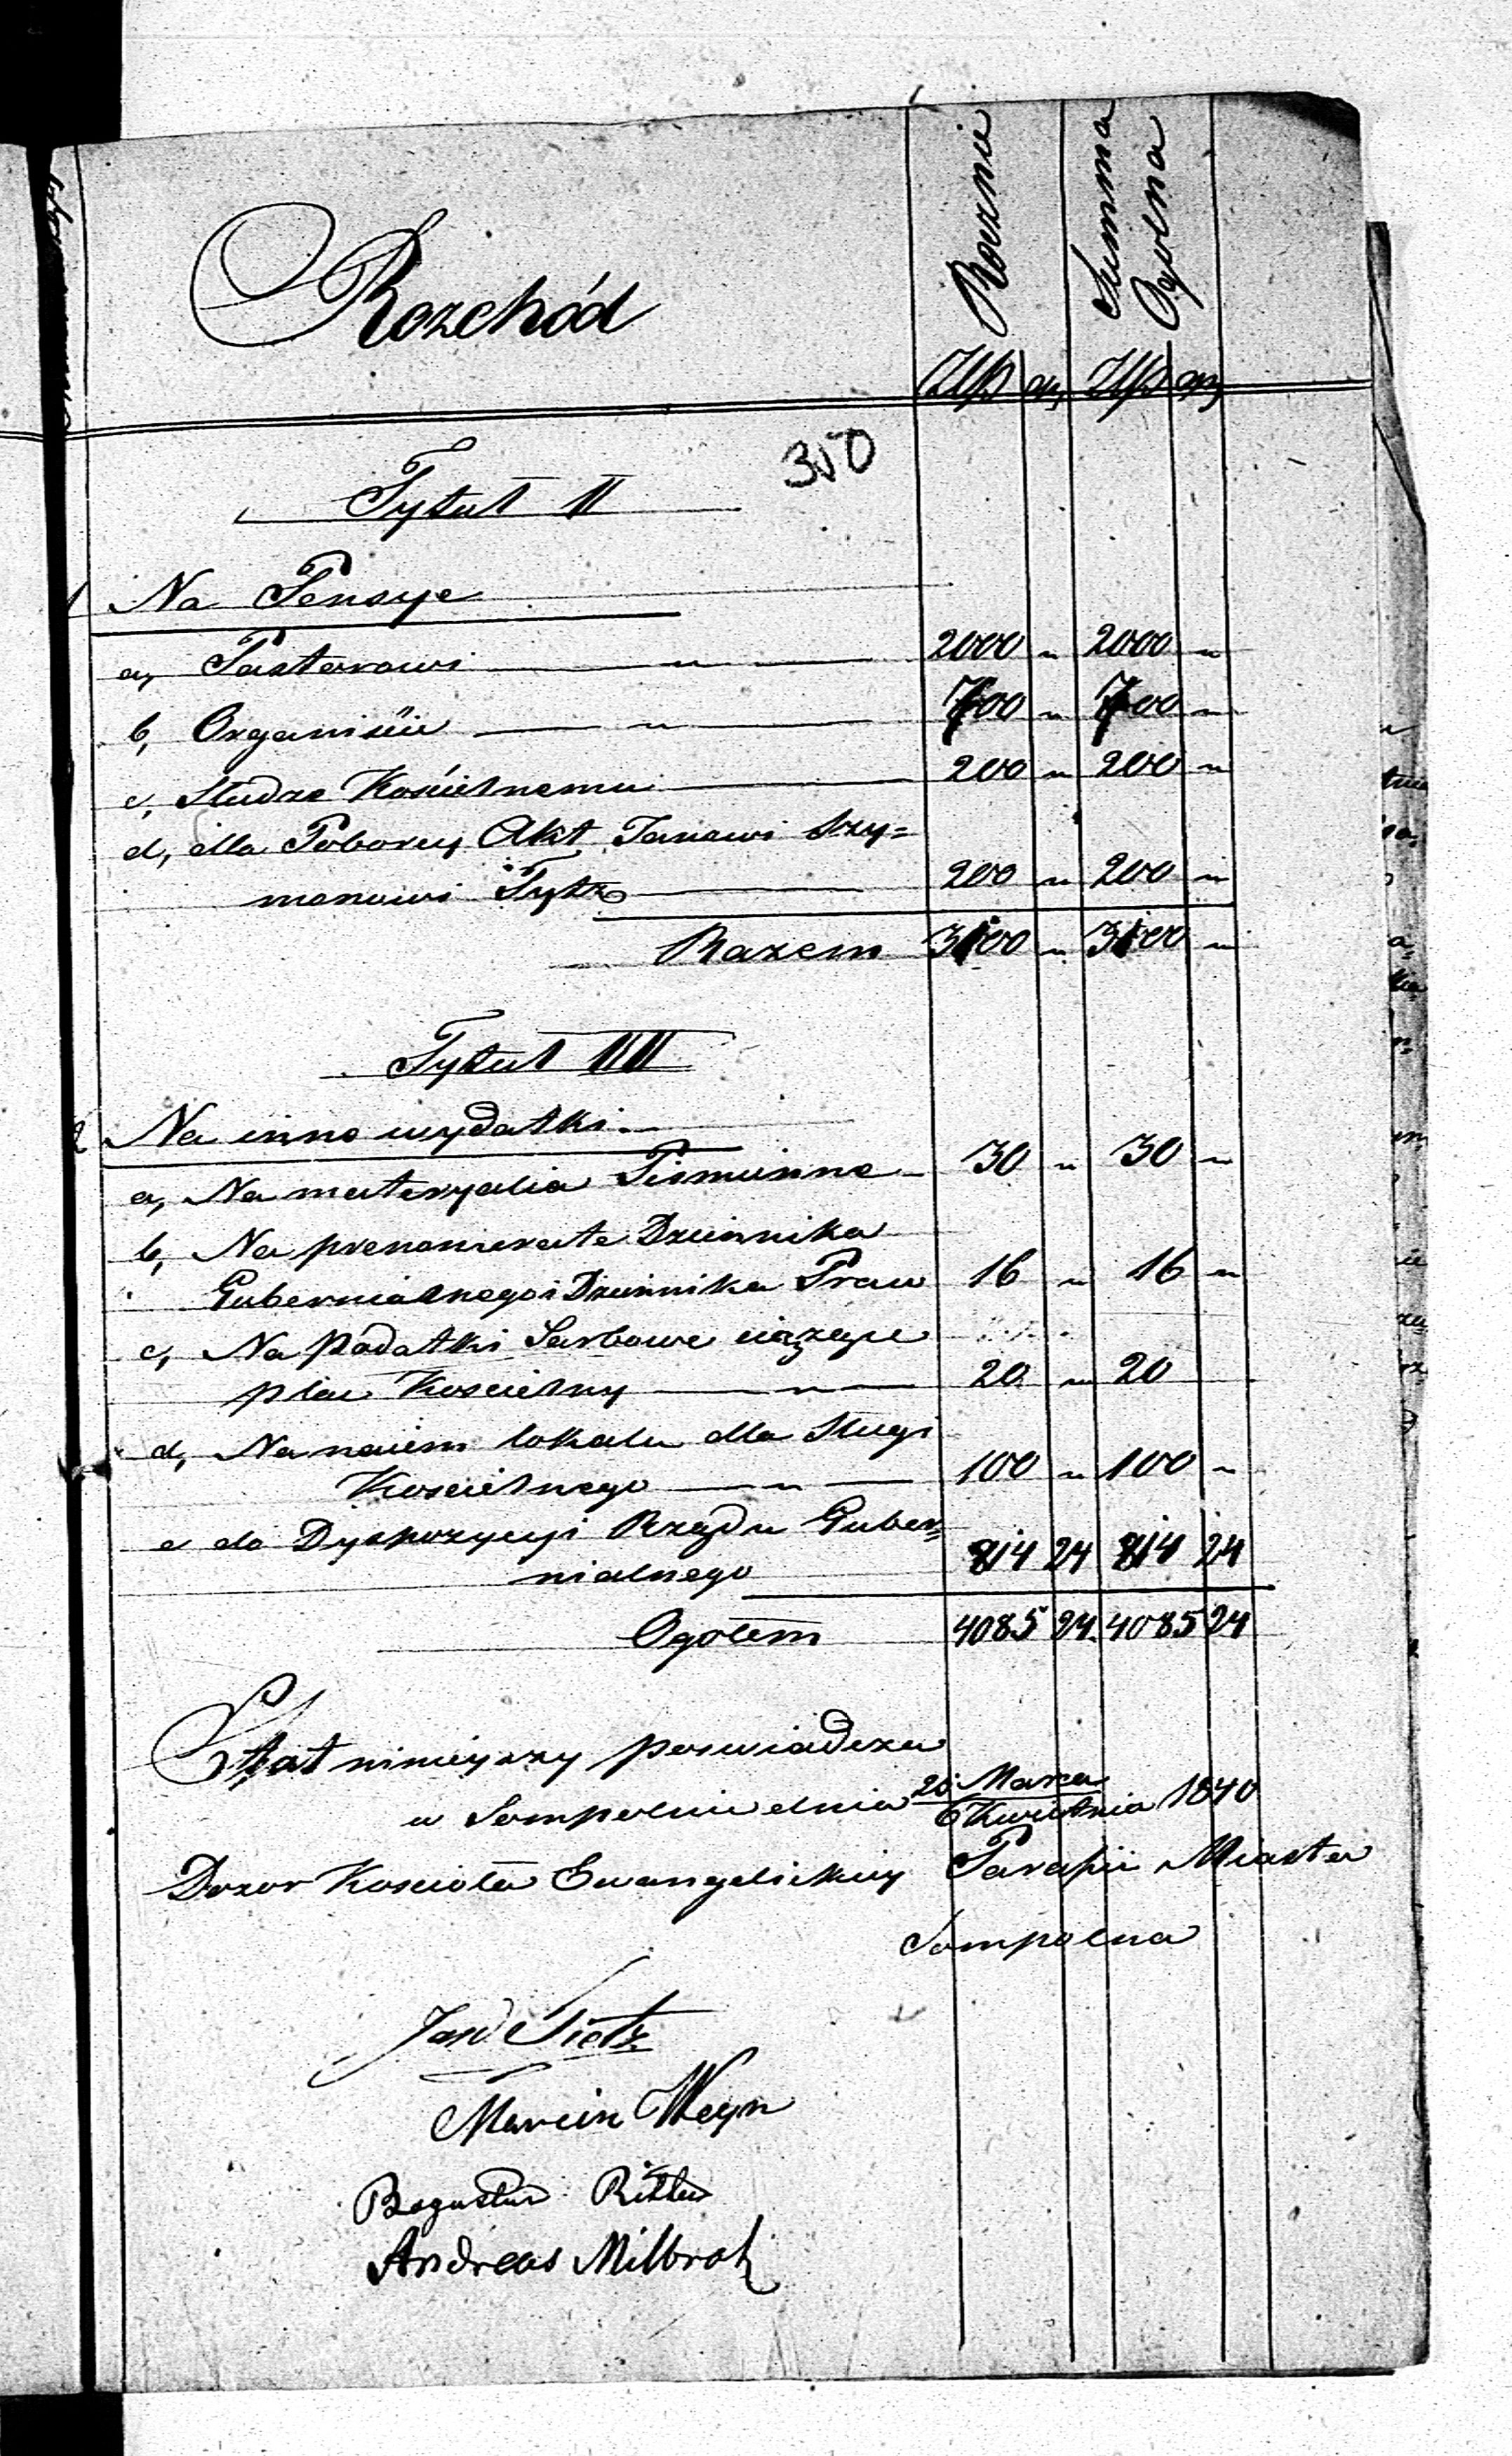 Rozchód
Rocznie
Summa
Ogolna
Złp gr Złp gr
350
Tytuł II
1 Na Pensye
a, Pastorowi — „ — 2000 „ 2000 „
b, Organiście — „ — 700 „ 700 „
c, Słudze Kościelnemu — 200 „ 200 „
d, dla Poborcy Akt Janowi Szy=
manowi Tytz — 200 „ 200 „
Razem 3100 „ 3100 „
Tytuł III
2 Na inne wydatki
a, Na materyalia Pismienne 30 „ 30 „
b, Na prenomerate Dziennika
Gubernialnego i Dziennika Praw 16 „ 16 „
c, Na Podatki Sarbowe ciązące
plac Koscielny — „ — 20 „ 20
d, Na naiem lokalu dla Sługi
Koscielnego — „ — 100 „ 100 „
e do Dyspozycyi Rządu Guber=
nialnego 814 24 814 24
Ogołem 4085 24 4085 24
Etat ninieyszy poswiadcza
w Sompolnie dnia 25 Marca
6 Kwietnia 1840
Dozor Koscioła Ewangelickiey Parafii Miasta
Sompolna
Tietz
Marcin Weyn
Bogusław Ritter
Andreas Milbrat